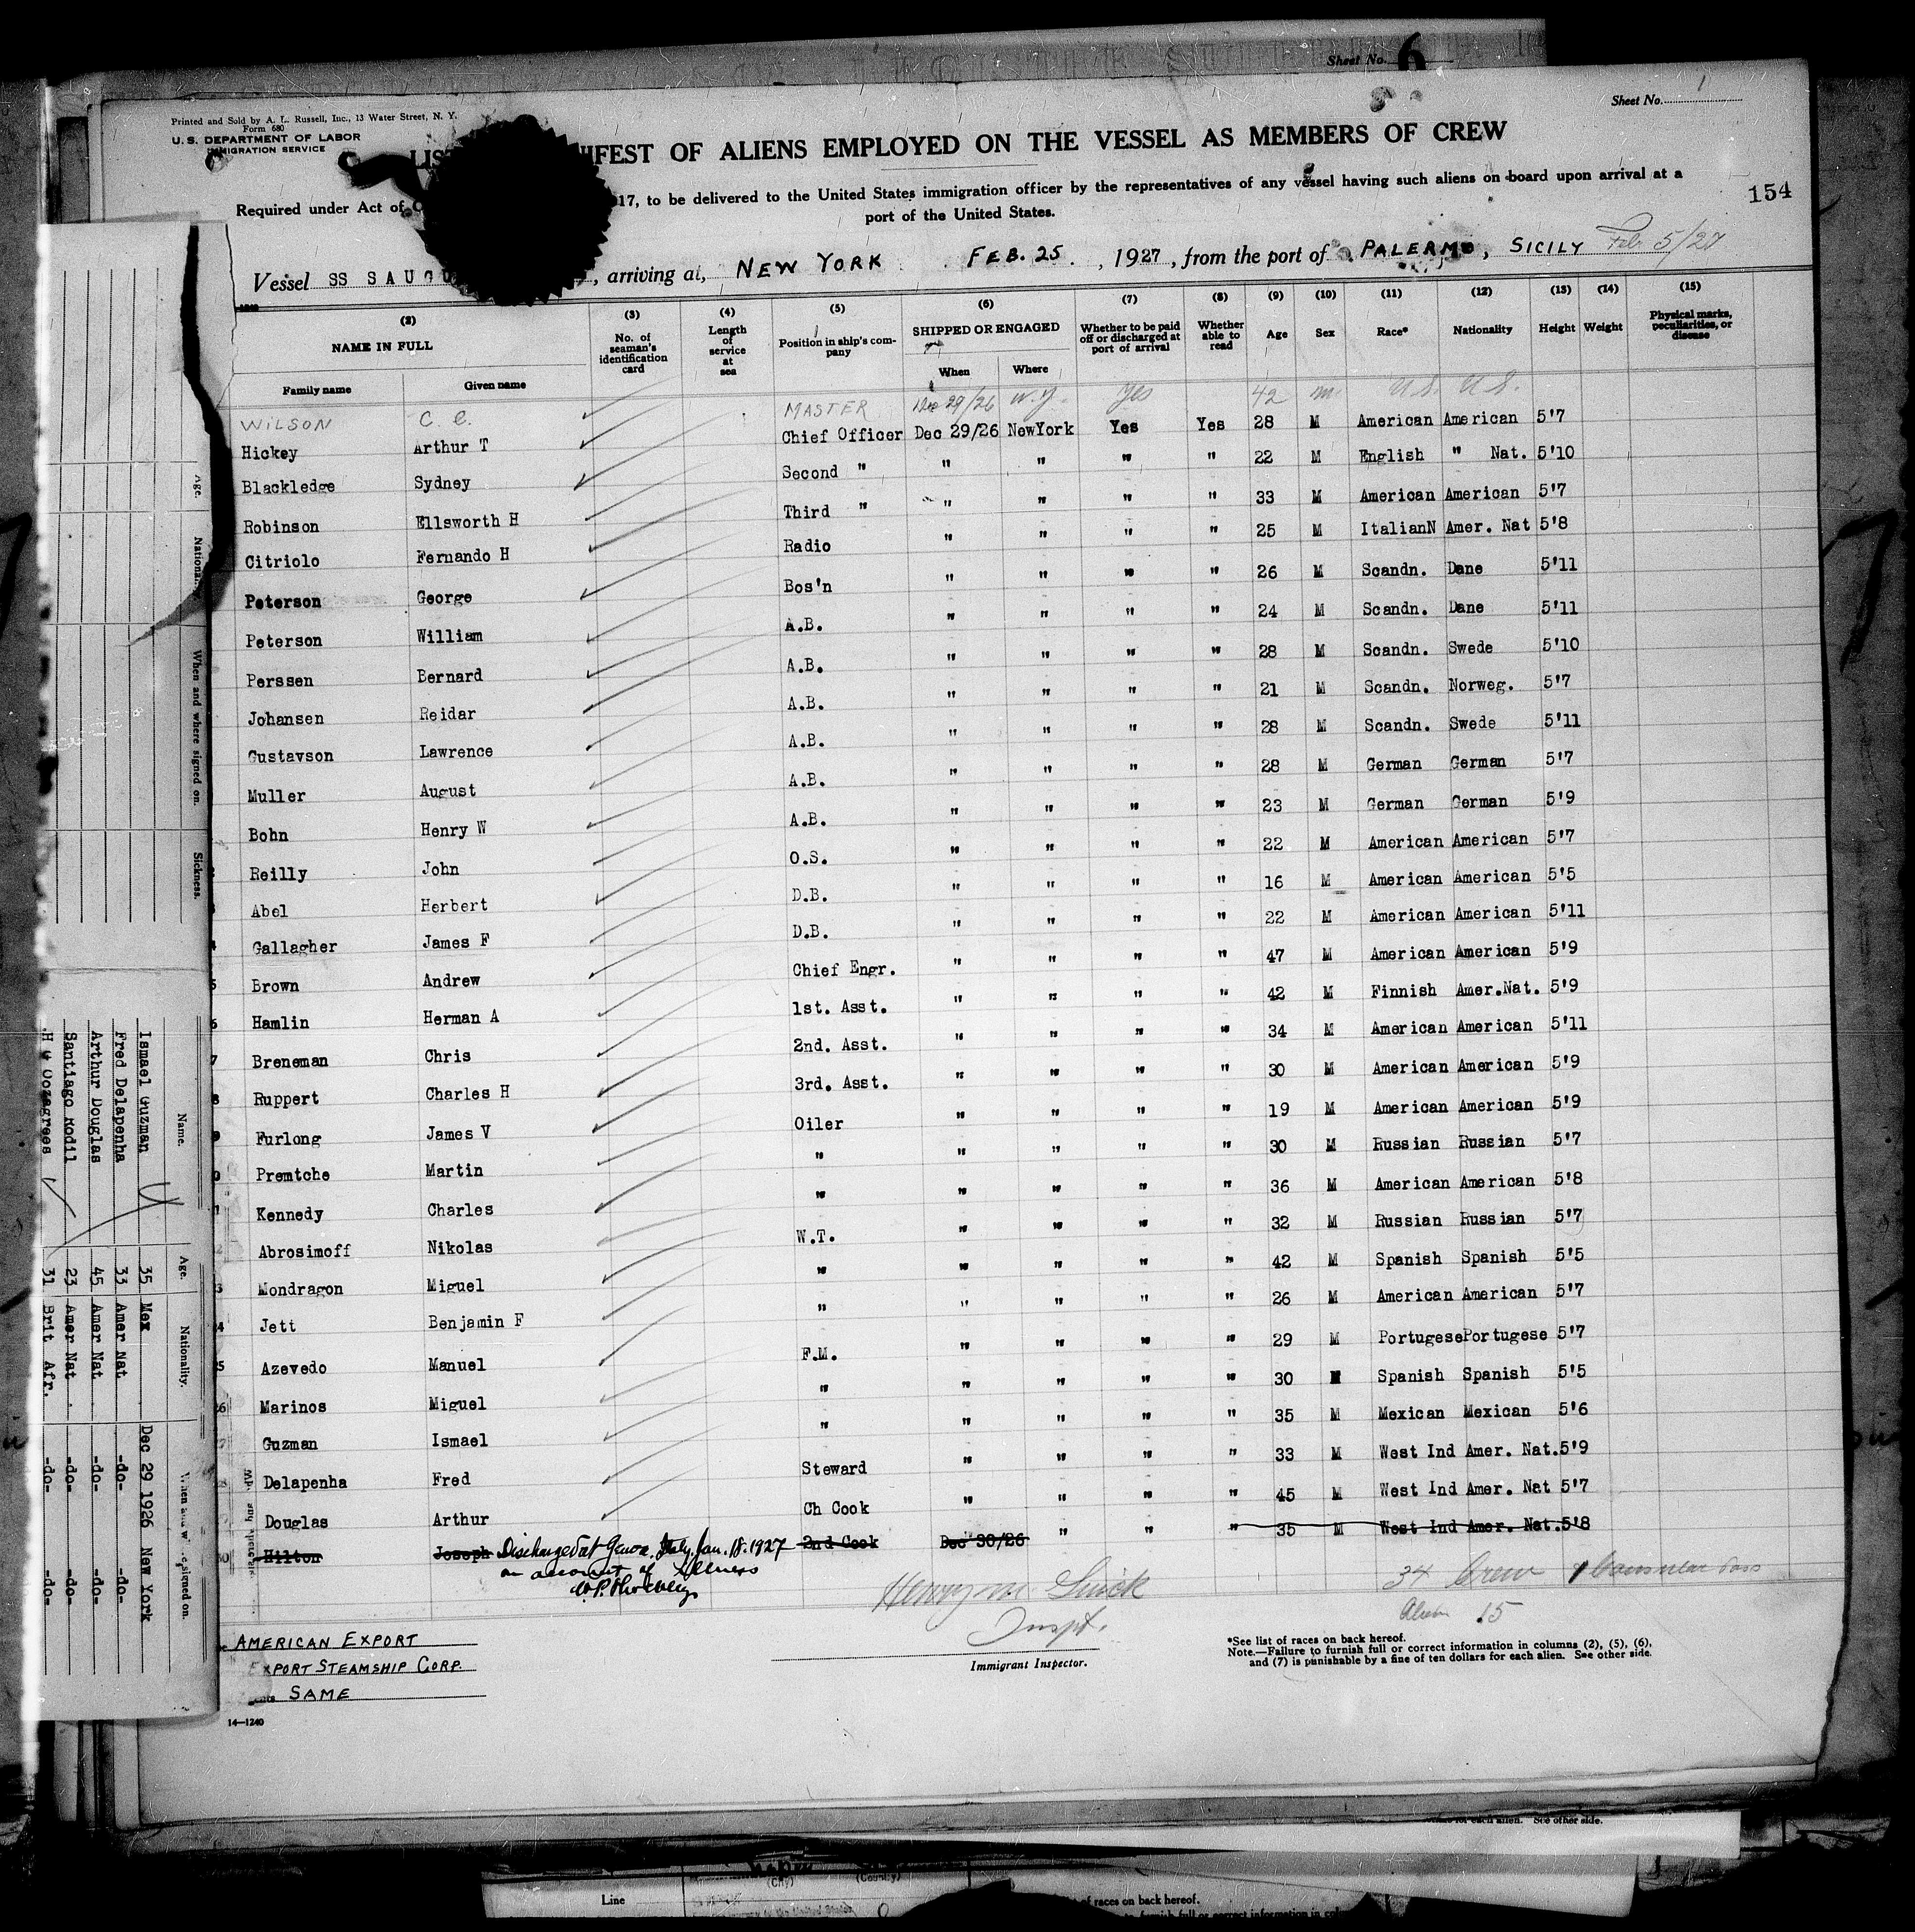 Sheet No. 6
Sheet No. 1
Printed and Sold by A. L. Russell, Inc., 13 Water Street, N. Y.
Form 680
U. S. DEPARTMENT OF LABOR
IMMIGRATION SERVICE
LIS IFEST OF ALIENS EMPLOYED ON THE VESSEL AS MEMBERS OF CREW
154
Required under Act of C 17, to be delivered to the United States immigration officer by the representatives of any vessel having such aliens on board upon arrival at a
port of the United States.
Vessel SS SAUGU , arriving at, NEW YORK FEB. 25 , 1927, from the port of PALERMO, SICILY Feb 5/27
(2) (3) (4) (5) (6) (7) (8) (9) (10) (11) (12) (13) (14) (15)
NAME IN FULL No. of seaman's identification card Length of service at sea Position in ship's company SHIPPED OR ENGAGED Whether to be paid off or discharged at port of arrival Whether able to read Age Sex Race* Nationality Height Weight Physical marks, peculiarities, or disease
Family name Given name When Where
WILSON C. C. MASTER Dec 29/26 N.Y. Yes 42 m. U.S. U.S.
Hickey Arthur T Chief Officer Dec 29/26 NewYork Yes Yes 28 M American American 5'7
Blackledge Sydney Second " " " " " 22 M English " Nat. 5'10
Robinson Ellsworth H Third " " " " " 33 M American American 5'7
Citriolo Fernando H Radio " " " " 25 M ItalianN Amer. Nat 5'8
Peterson George Bos'n " " " " 26 M Scandn. Dane 5'11
Peterson William A.B. " " " " 24 M Scandn. Dane 5'11
Perssen Bernard A.B. " " " " 28 M Scandn. Swede 5'10
Johansen Reidar A.B. " " " " 21 M Scandn. Norweg. 5'7
Gustavson Lawrence A.B. " " " " 28 M Scandn. Swede 5'11
Muller August A.B. " " " " 28 M German German 5'7
Bohn Henry W A.B. " " " " 23 M German German 5'9
Reilly John O.S. " " " " 22 M American American 5'7
Abel Herbert D.B. " " " " 16 M American American 5'5
Gallagher James F D.B. " " " " 22 M American American 5'11
Brown Andrew Chief Engr. " " " " 47 M American American 5'9
Hamlin Herman A 1st. Asst. " " " " 42 M Finnish Amer.Nat. 5'9
Breneman Chris 2nd. Asst. " " " " 34 M American American 5'11
Ruppert Charles H 3rd. Asst. " " " " 30 M American American 5'9
Furlong James V Oiler " " " " 19 M American American 5'9
Premtche Martin " " " " " 30 M Russian Russian 5'7
Kennedy Charles " " " " " 36 M American American 5'8
Abrosimoff Nikolas W.T. " " " " 32 M Russian Russian 5'7
Mondragon Miguel " " " " " 42 M Spanish Spanish 5'5
Jett Benjamin F " " " " " 26 M American American 5'7
25 Azevedo Manuel F.M. " " " " 29 M Portugese Portugese 5'7
26 Marinos Miguel " " " " " 30 M Spanish Spanish 5'5
Guzman Ismael " " " " " 35 M Mexican Mexican 5'6
Delapenha Fred Steward " " " " 33 M West Ind Amer. Nat. 5'9
Douglas Arthur Ch Cook " " " " 45 M West Ind Amer. Nat 5'7
30 Hilton Joseph Discharged at Genoa, Italy Jan. 18. 1927 2nd Cook Dec 30/26 " " " 35 M West Ind Amer. Nat. 5'8
on account of Illness
34 Crew 1 Consular Pass
Alien 15
Inspt.
Immigrant Inspector.
*See list of races on back hereof.
Note.—Failure to furnish full or correct information in columns (2), (5), (6),
and (7) is punishable by a fine of ten dollars for each alien. See other side.
AMERICAN EXPORT
EXPORT STEAMSHIP CORP.
SAME
14—1240
Age. National When and where signed on. Sickness.
Name. Age. Nationality. When and w signed on.
Ismael Guzman 35 Mex Dec 29 1926 New York
Fred Delapenha 33 Amer Nat -do- -do-
Arthur Douglas 45 Amer Nat -do- -do-
Santiago Rodil 23 Amer Nat -do- -do-
31 Brit Afr. -do- -do-
for each alien. See other side.
(City) (County)
Line
of races on back hereof.